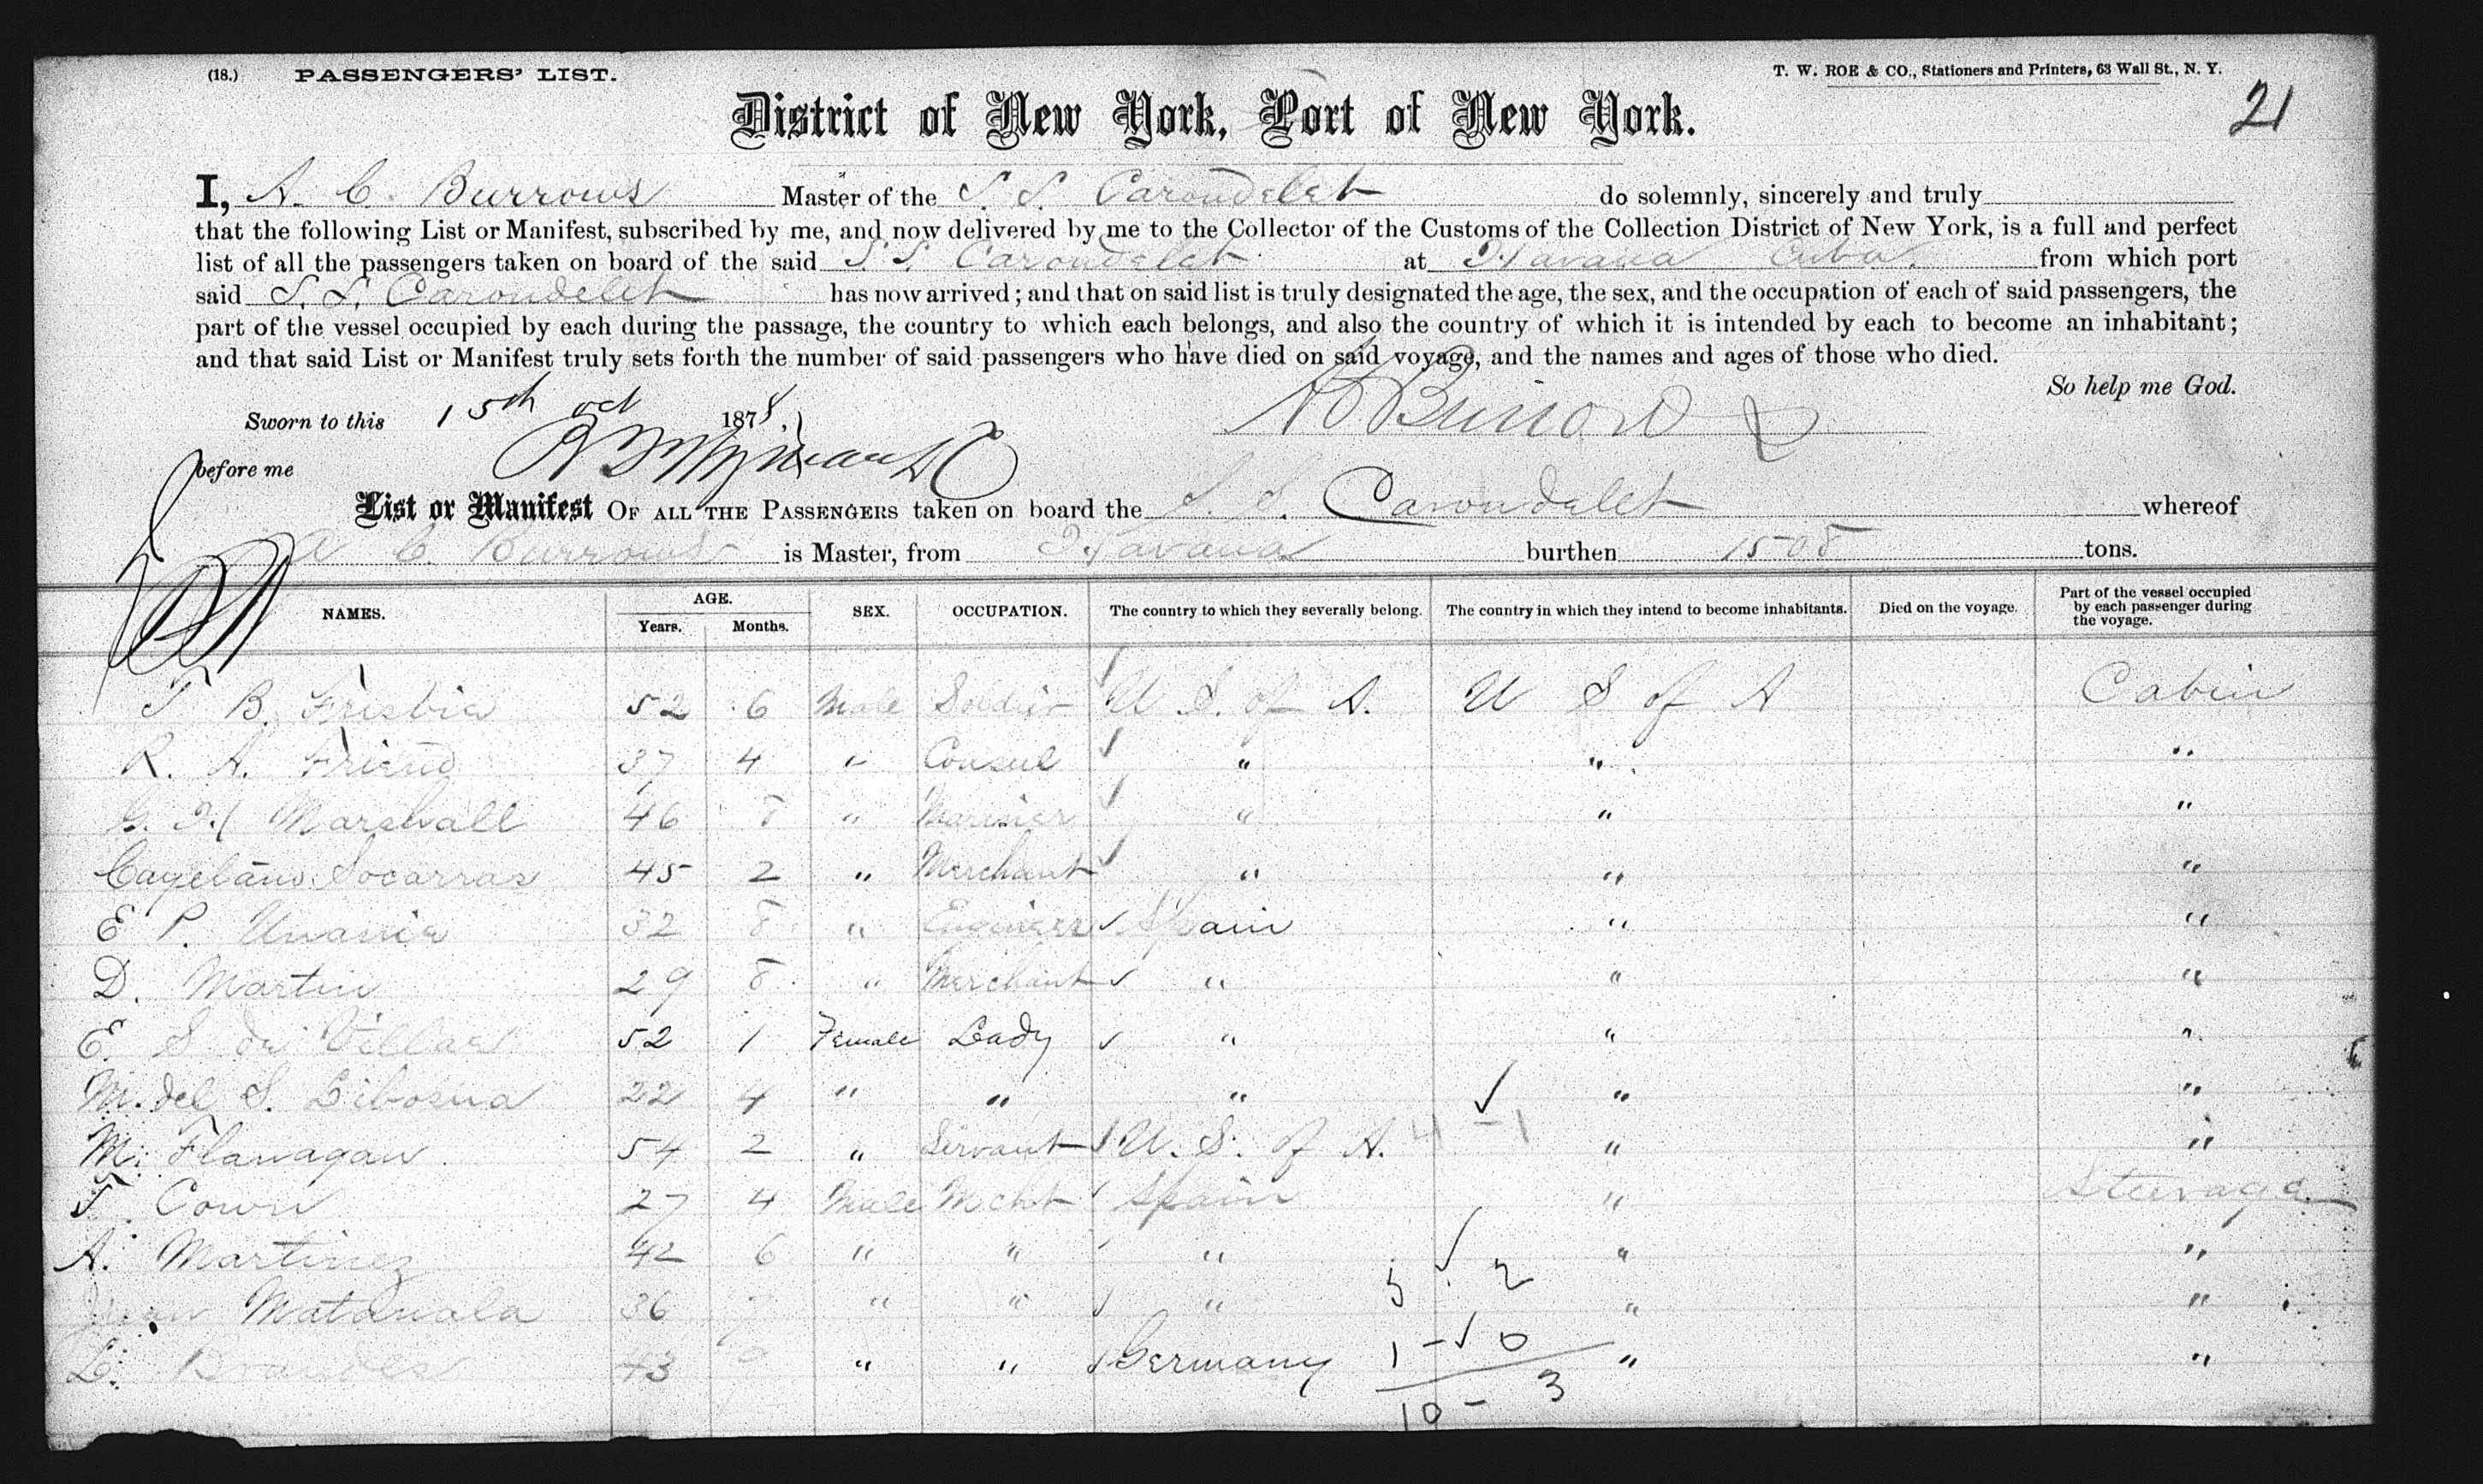 (18.) PASSENGERS' LIST. T. W. ROE & CO., Stationers and Printers, 63 Wall St., N. Y.
21
District of New York, Port of New York.
I, A. C. Burrows Master of the S. S. Carondelet do solemnly, sincerely and truly
that the following List or Manifest, subscribed by me, and now delivered by me to the Collector of the Customs of the Collection District of New York, is a full and perfect
list of all the passengers taken on board of the said S. S. Carondelet at Havana Cuba. from which port
said S. S. Carondelet has now arrived; and that on said list is truly designated the age, the sex, and the occupation of each of said passengers, the
part of the vessel occupied by each during the passage, the country to which each belongs, and also the country of which it is intended by each to become an inhabitant;
and that said List or Manifest truly sets forth the number of said passengers who have died on said voyage, and the names and ages of those who died.
So help me God.
Sworn to this 15th oct 1878, A C Burrows
before me
List or Manifest OF ALL THE PASSENGERS taken on board the S. S. Carondelet whereof
A C. Burrows is Master, from Havana burthen 1508 tons.
NAMES. AGE. Years. Months. SEX. OCCUPATION. The country to which they severally belong. The country in which they intend to become inhabitants. Died on the voyage. Part of the vessel occupied by each passenger during the voyage.
B. Frisbie 52 6 Male Soldier U. S. of A. U S of A Cabin
R. A. Friend 37 4 " Consul " " "
G. H Marshall 46 8 " Mariner " " "
Cayetano Socarras 45 2 " Merchant " " "
E P. 32 8 " Engineer Spain " "
D. Martin 29 8 " Merchant " " "
E. S de Villar 52 1 Female Lady " " "
M. del S. 22 4 " " " " "
M. Flanagan 54 2 " Servant U. S. of A. 4 - 1 " "
Cown 27 4 Male Mcht Spain " Steerage
A. Martinez 42 6 " " " " "
5 2
Juan 36 7 " " " " "
L. Brandes 43 9 " " Germany 1 - 0 " "
10 - 3